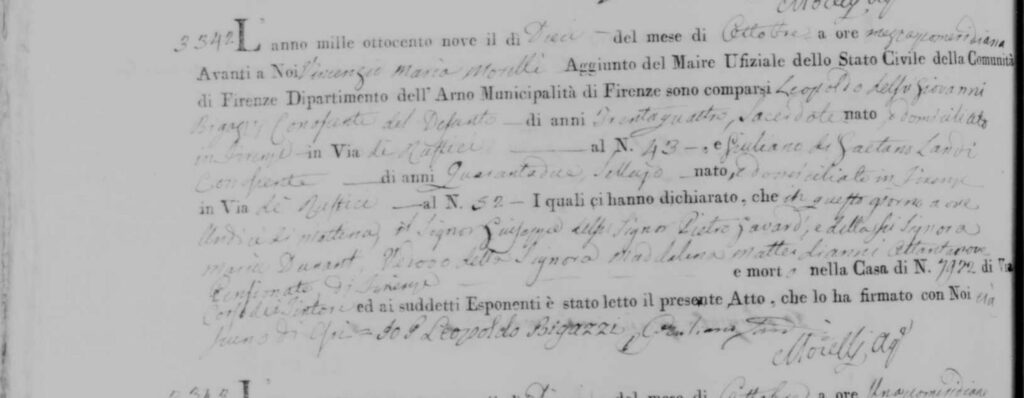 Morelli, Agg.
3342 L'anno mille ottocento nove il di Dieci – del mese di Ottobre a ore mezzapomeridiana
Avanti a Noi Vincenzio Maria Morelli Aggiunto del Maire Ufiziale dello Stato Civile della Comunità
di Firenze Dipartimento dell' Arno Municipalità di Firenze sono comparsi Leopoldo del fu Giovanni
Bigazzi, Conoscente del Defunto – di anni Trentaquattro, Sacerdote nato e domiciliato
in Firenze – in Via de Rustici – al N. 43 –, e Giuliano di Gaetano Landi
Conoscente – di anni Quarantadue, Sellajo – nato, e domiciliato in Firenze
in Via de Rustici – al N. 52 – I quali ci hanno dichiarato, che in questo giorno a ore
Undici di mattina, il Signor Giuseppe del fu Signor Pietro e della fu Signora
Maria Durant, Vedovo della Signora Maddalena di anni Ottantanove
Pensionato di Firenze – e morto nella Casa di N. 7972 di Via
Corso dei Tintori ed ai suddetti Esponenti è stato letto il presente Atto, che lo ha firmato con Noi cia
scuno di Essi = Io P. Leopoldo Bigazzi, Giuliano Landi
Morelli, Agg.
3343 L' Ottobre a ore Unapomeridiana